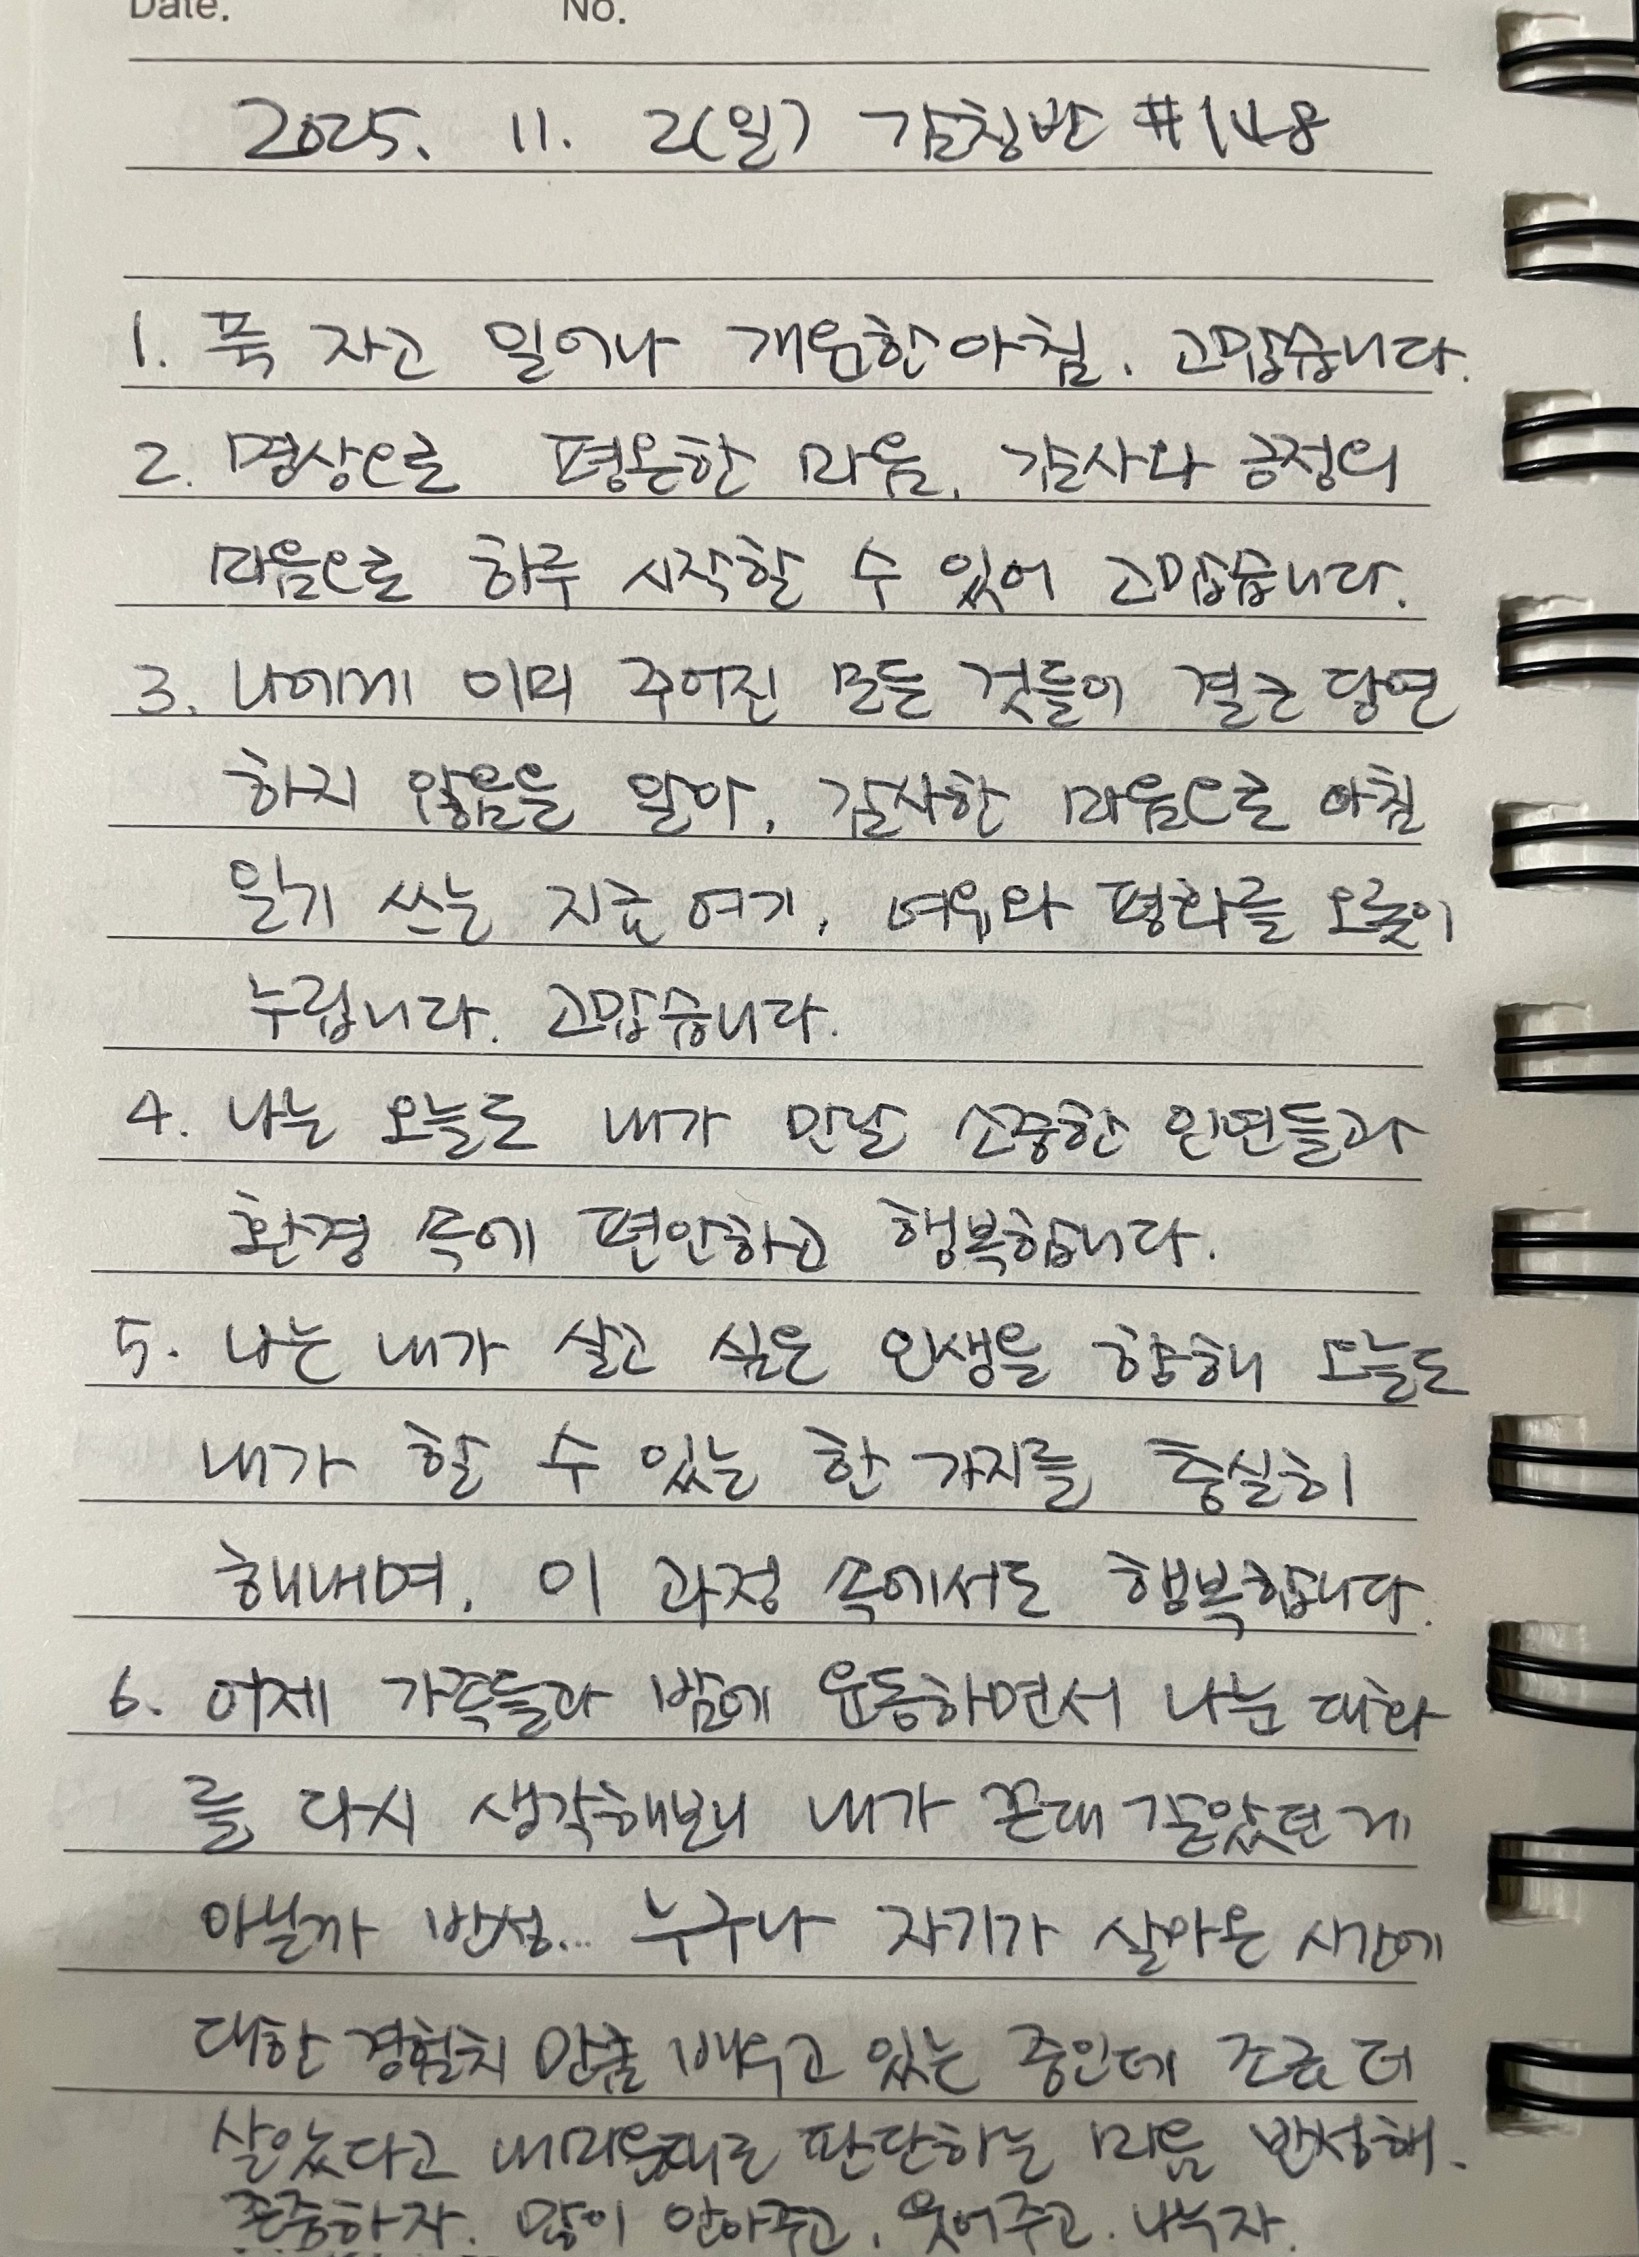 Date. No.
2025. 11. 2(일) 감칭반 #148
1. 푹 자고 일어나 개운한 아침. 고맙습니다.
2. 명상으로 평온한 마음. 감사와 긍정의
마음으로 하루 시작할 수 있어 고맙습니다.
3. 나에게 이미 주어진 모든 것들이 결코 당연
하지 않음을 알아, 감사한 마음으로 아침
일기 쓰는 지금 여기, 여유와 평화를 오롯이
누립니다. 고맙습니다.
4. 나는 오늘도 내가 만날 소중한 인연들과
환경 속에 편안하고 행복합니다.
5. 나는 내가 살고 싶은 인생을 향해 오늘도
내가 할 수 있는 한 가지를 충실히
해내며, 이 과정 속에서도 행복합니다.
6. 어제 가족들과 밤에 운동하면서 나눈 대화
를 다시 생각해보니 내가 꼰대 같았던 게
아닐까 반성... 누구나 자기가 살아온 시간에
대한 경험치 만큼 배우고 있는 중인데 조금 더
살았다고 내마음대로 판단하는 마음 반성해.
존중하자. 많이 안아주고, 웃어주고. 나누자.